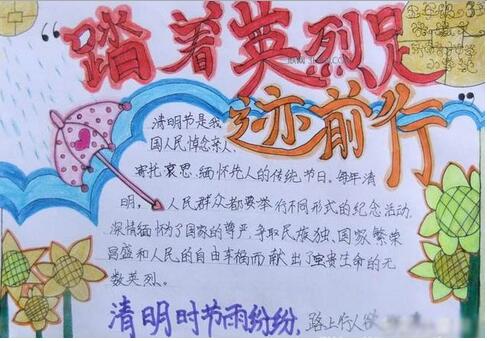 “踏着英烈足
迹前行”
清明节是我
国人民悼念亲人、
寄托哀思、缅怀先人的传统节日。每年清
明。人民群众都要举行不同形式的纪念活动,
深情缅怀为了国家的尊严,争取民族独、国家繁荣
昌盛和人民的自由幸福而献出了宝贵生命的无
数英烈。
清明时节雨纷纷,路上行人欲